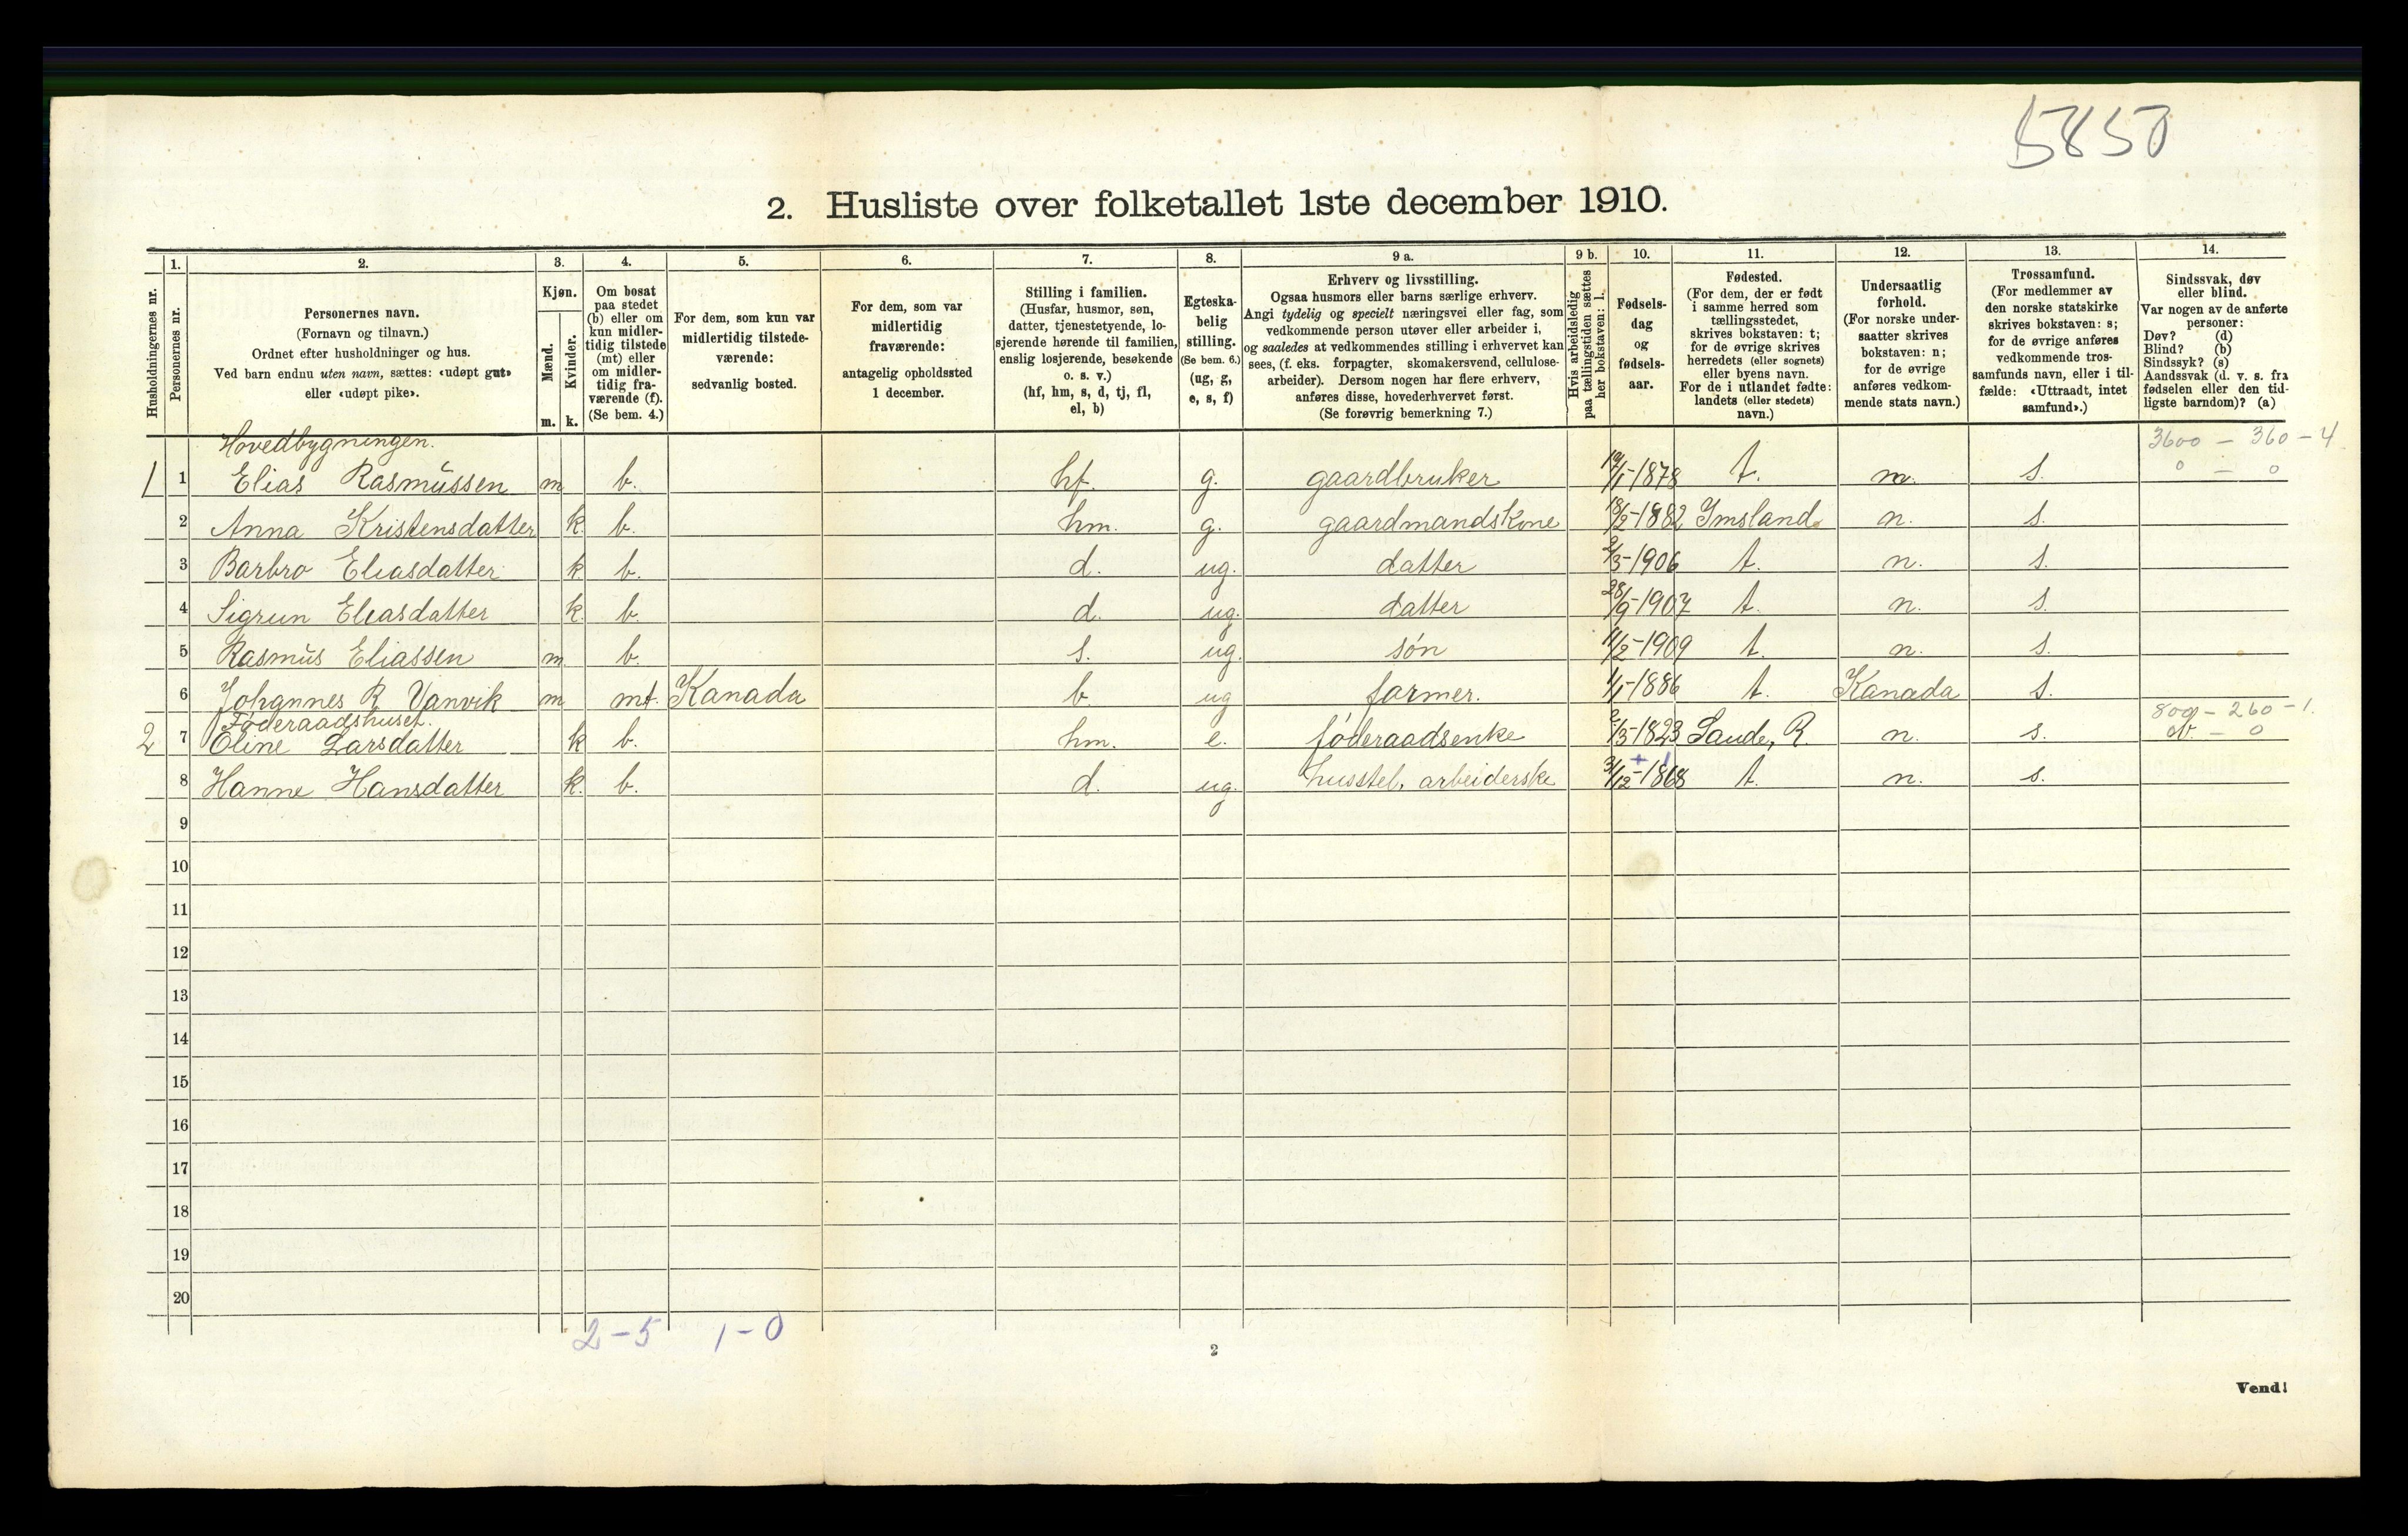 5850
2. Husliste over folketallet 1ste december 1910.
Husholdningernes nr.
1.
Personernes nr.
2.
Personernes navn.
(Fornavn og tilnavn.)
Ordnet efter husholdninger og hus.
Ved barn endnu uten navn, sættes: «udøpt gut»
eller «udøpt pike».
3.
Kjøn.
Mænd.
Kvinder.
m. k.
4.
Om bosat
paa stedet
(b) eller om
kun midler-
tidig tilstede
(mt) eller
om midler-
tidig fra-
værende (f).
(Se bem. 4.)
5.
For dem, som kun var
midlertidig tilstede-
værende:
sedvanlig bosted.
6.
For dem, som var
midlertidig
fraværende:
antagelig opholdssted
1 december.
7.
Stilling i familien.
(Husfar, husmor, søn,
datter, tjenestetyende, lo-
sjerende hørende til familien,
enslig losjerende, besøkende
o. s. v.)
(hf, hm, s, d, tj, fl,
el, b)
8.
Egteska-
belig
stilling.
(Se bem. 6.)
(ug, g,
e, s, f)
9 a.
Erhverv og livsstilling.
Ogsaa husmors eller barns særlige erhverv.
Angi tydelig og specielt næringsvei eller fag, som
vedkommende person utøver eller arbeider i,
og saaledes at vedkommendes stilling i erhvervet kan
sees, (f. eks. forpagter, skomakersvend, cellulose-
arbeider). Dersom nogen har flere erhverv,
anføres disse, hovederhvervet først.
(Se forøvrig bemerkning 7.)
9 b.
Hvis arbeidsledig
paa tællingstiden sættes
her bokstaven: l.
10.
Fødsels-
dag
og
fødsels-
aar.
11.
Fødested.
(For dem, der er født
i samme herred som
tællingsstedet,
skrives bokstaven: t;
for de øvrige skrives
herredets (eller sognets)
eller byens navn.
For de i utlandet fødte:
landets (eller stedets)
navn.)
12.
Undersaatlig
forhold.
(For norske under-
saatter skrives
bokstaven: n;
for de øvrige
anføres vedkom-
mende stats navn.)
13.
Trossamfund.
(For medlemmer av
den norske statskirke
skrives bokstaven: s;
for de øvrige anføres
vedkommende tros-
samfunds navn, eller i til-
fælde: «Uttraadt, intet
samfund».)
14.
Sindssvak, døv
eller blind.
Var nogen av de anførte
personer:
Døv? (d)
Blind? (b)
Sindssyk? (s)
Aandssvak (d. v. s. fra
fødselen eller den tid-
ligste barndom)? (a)
Hovedbygningen. 3600 - 360 - 4
1 1 Elias Rasmussen m b. hf. g. gaardbruker 19/1-1878 t. n. s. 0 - 0
2 Anna Kristensdatter k. b. hm. g. gaardmandskone 18/2-1882 Imsland n. s.
3 Barbro Eliasdatter k. b. d. ug. datter 2/3-1906 t. n. s.
4 Sigrun Eliasdatter k. b. d. ug. datter 28/9-1907 t. n. s.
5 Rasmus Eliassen m b. s. ug. søn 11/2-1909 t. n. s.
6 Johannes R Vanvik m mt. Kanada b. ug farmer. 1/1-1886 t. Kanada s.
Føderaadshuset. 800 - 260 - 1.
2 7 Eline Larsdatter k b. hm. e. føderaadsenke 2/3-1823 Saude, R. n. s. - 0
8 Hanne Hansdatter k. b. d. ug. husstel, arbeiderske 31/12-1868 t. n. s.
9
10
11
12
13
14
15
16
17
18
19
20
2-5 1-0
2
Vend!